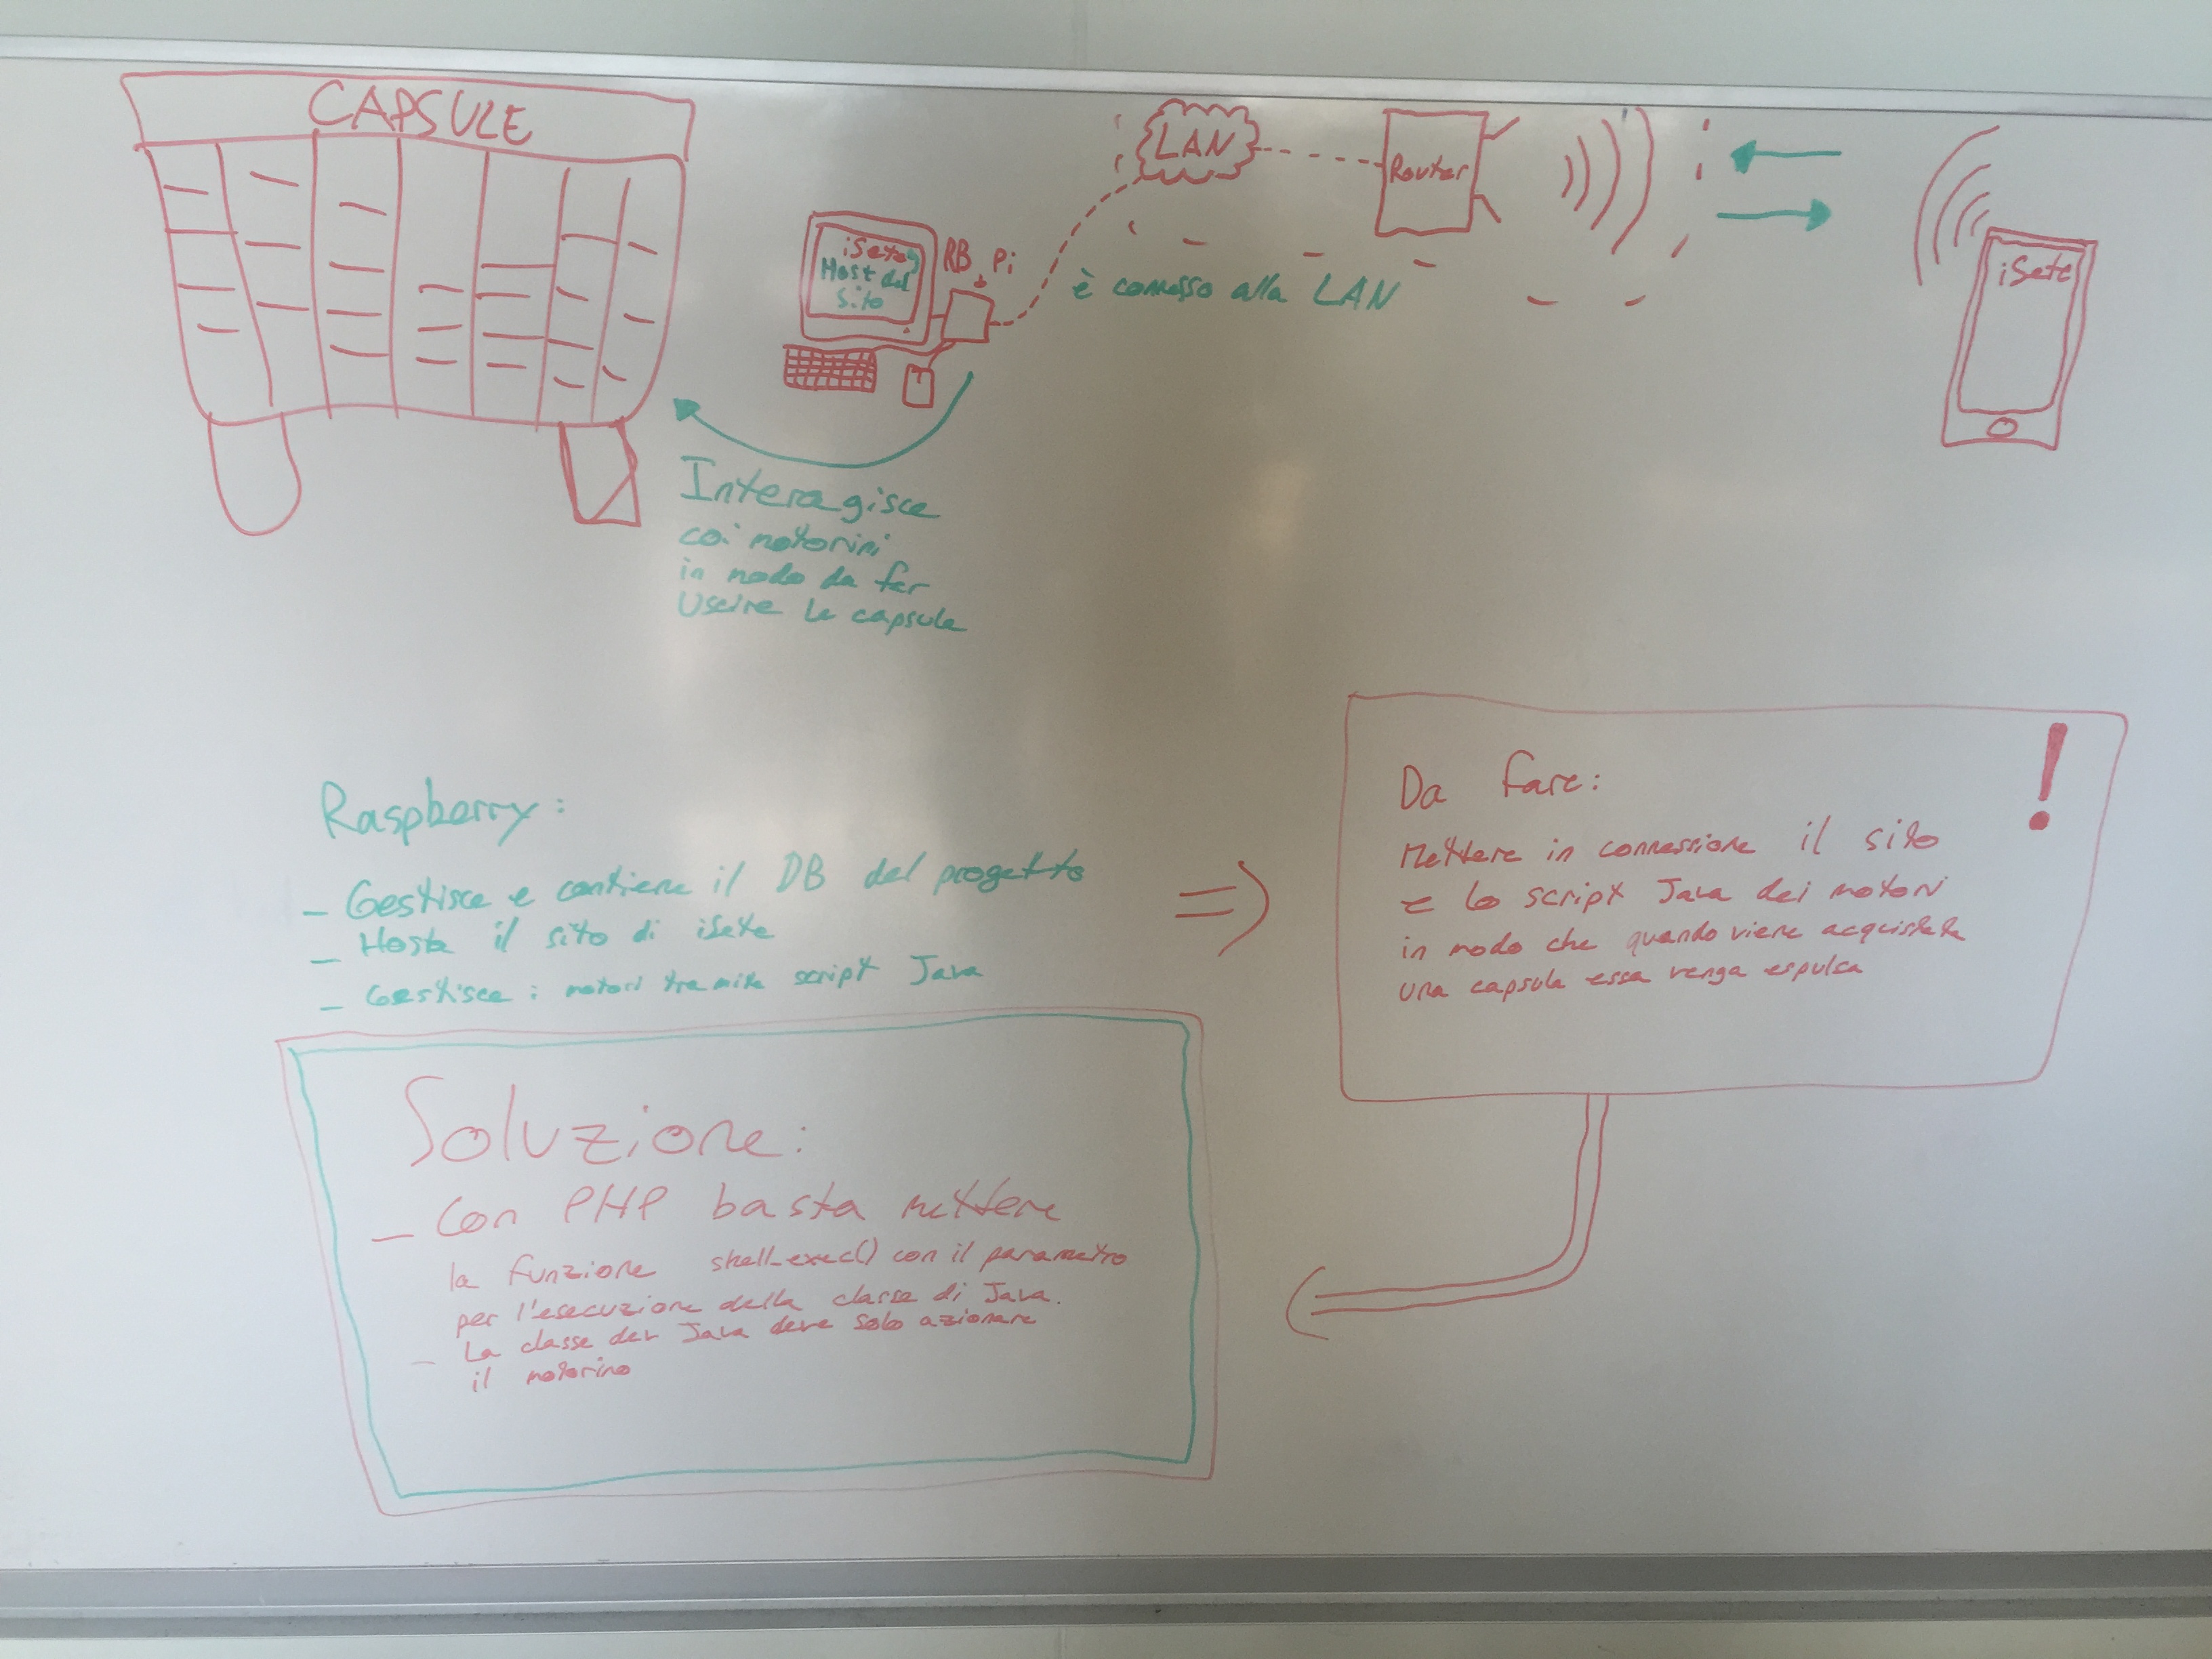 CAPSULE
LAN
Router
iSete
Host del
Sito
RB Pi
è connesso alla LAN
iSete
Interagisce
coi motorini
in modo da far
Uscire le capsule
Raspberry:
- Gestisce e contiene il DB del progetto
- Hosta il sito di iSete
- Gestisce i motori tramite script Java
=>
Da fare: !
Mettere in connessione il sito
e lo script Java dei motori
in modo che quando viene acquistata
una capsula essa venga espulsa
Soluzione:
- Con PHP basta mettere
la funzione shell_exec() con il parametro
per l'esecuzione della classe di Java.
- La classe del Java deve solo azionare
il motorino